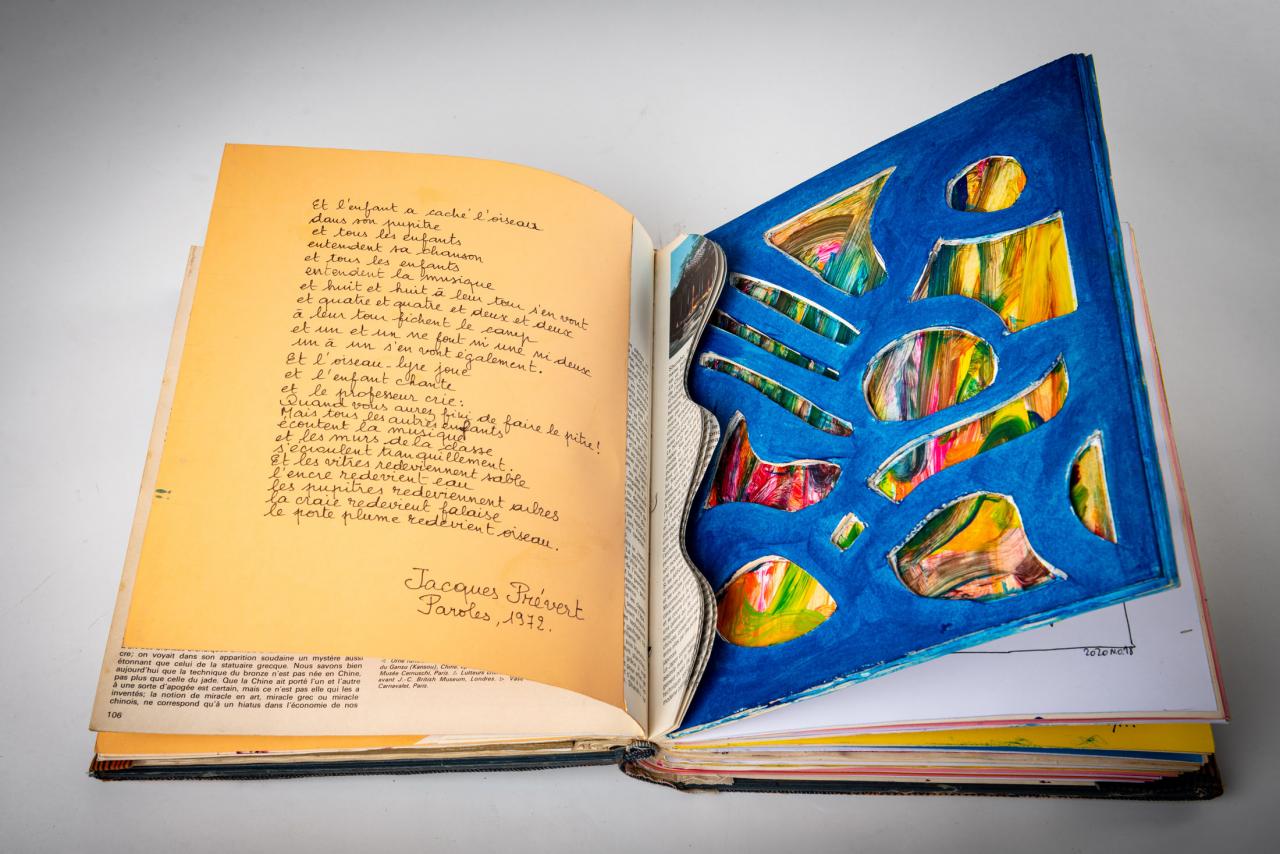 Et l'enfant a caché l'oiseau
dans son pupitre
et tous les enfants
entendent sa chanson
et tous les enfants
entendent la musique
et huit et huit à leur tour s'en vont
et quatre et quatre et deux et deux
à leur tour fichent le camp
et un et un ne font ni une ni deux
un à un s'en vont également.
Et l'oiseau-lyre joue
et l'enfant chante
et le professeur crie:
Quand vous aurez fini de faire le pitre!
Mais tous les autres enfants
écoutent la musique
et les murs de la classe
s'écroulent tranquillement.
Et les vitres redeviennent sable
l'encre redevient eau
les pupitres redeviennent arbres
la craie redevient falaise
le porte plume redevient oiseau.
Jacques Prévert
Paroles, 1972.
cre; on voyait dans son apparition soudaine un mystère aussi
étonnant que celui de la statuaire grecque. Nous savons bien
aujourd'hui que la technique du bronze n'est pas née en Chine,
pas plus que celle du jade. Que la Chine ait porté l'un et l'autre
à une sorte d'apogée est certain, mais ce n'est pas elle qui les a
inventés; la notion de miracle en art, miracle grec ou miracle
chinois, ne correspond qu'à un hiatus dans l'économie de nos
106
du Ganzo (Kansou), Chine.
Musée Cernuschi, Paris. Lutteurs
avant J.-C. British Museum, Londres. Vase
Carnavalet, Paris.
2020 NO.18